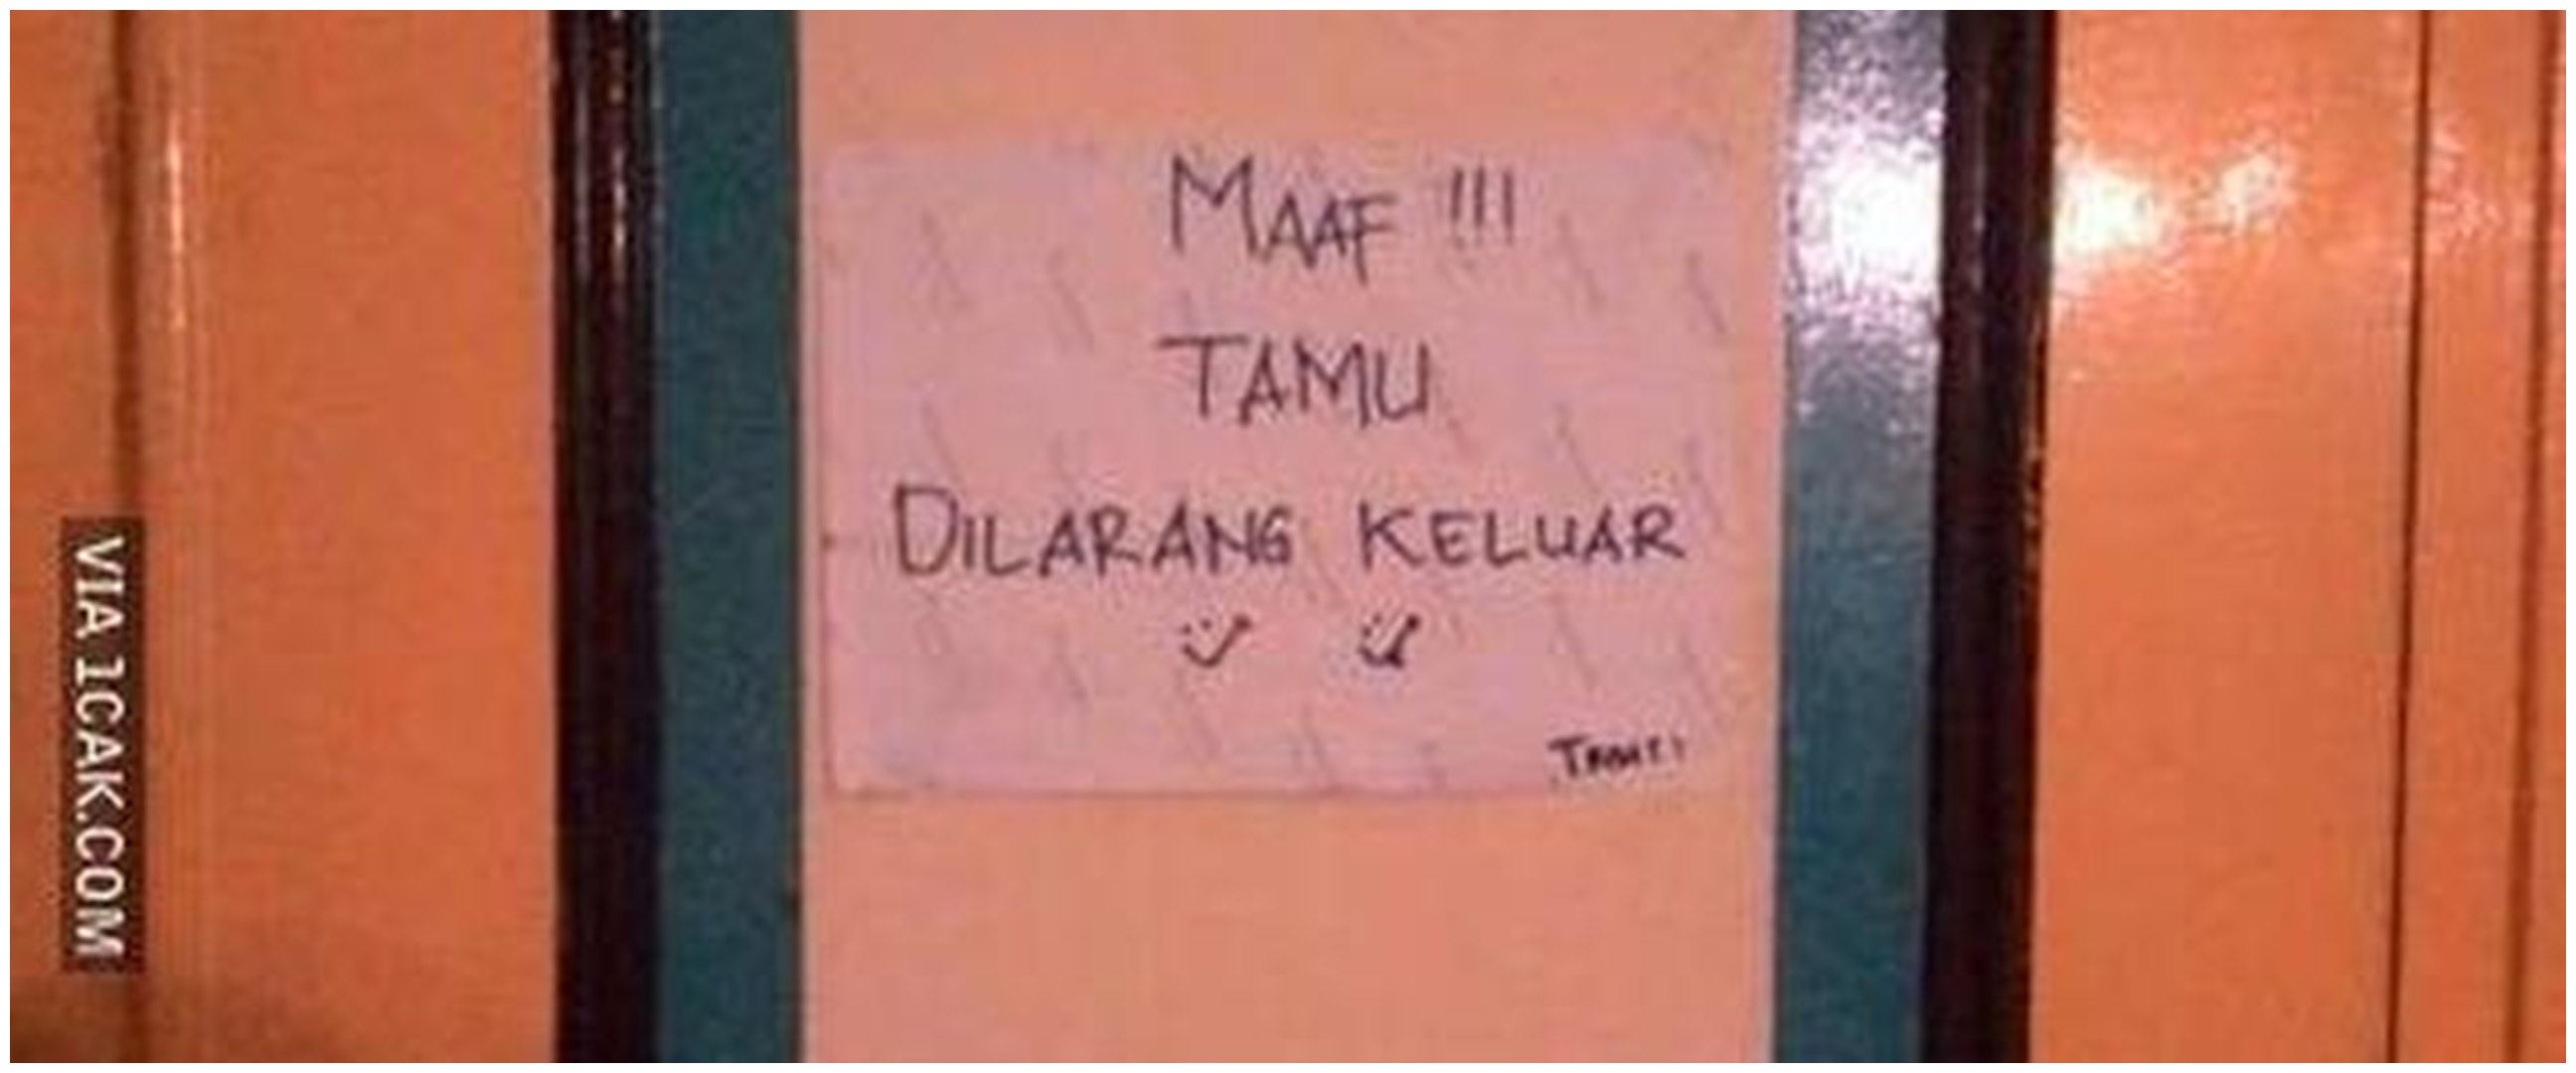 MAAF !!!
TAMU
DILARANG KELUAR
VIA 1CAK.COM